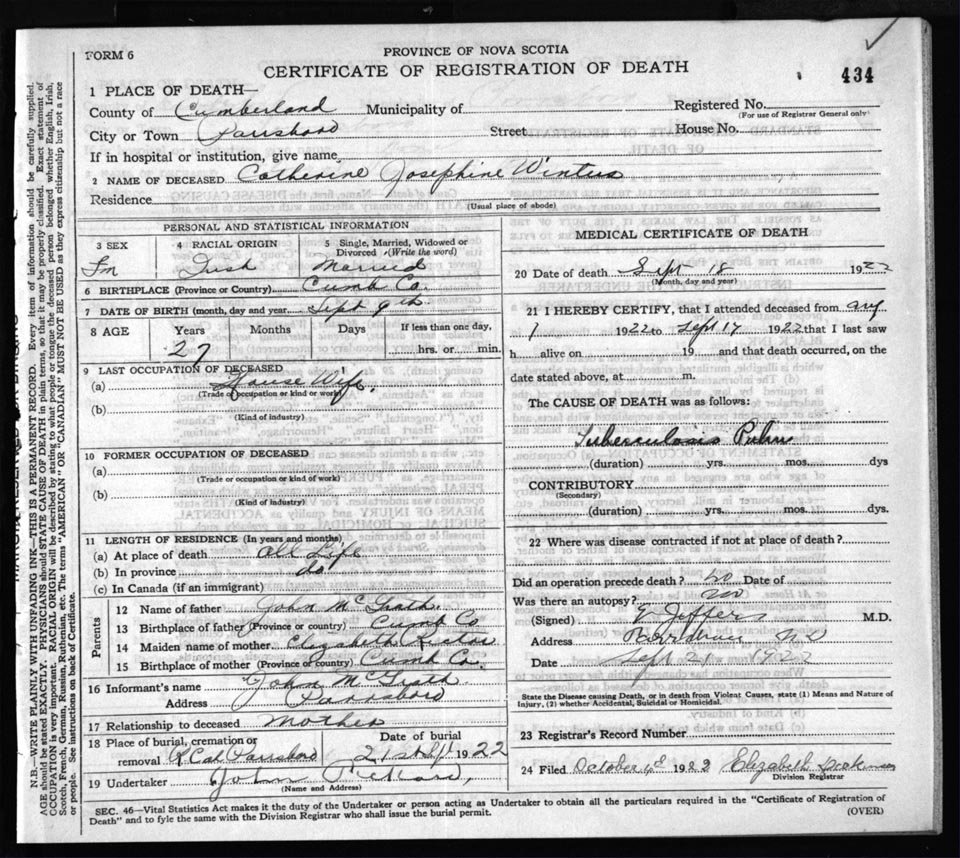 FORM 6
PROVINCE OF NOVA SCOTIA
CERTIFICATE OF REGISTRATION OF DEATH
434
1 PLACE OF DEATH—
County of Cumberland Municipality of
Registered No.
(For use of Registrar General only)
City or Town Parrsboro Street House No.
If in hospital or institution, give name
2 NAME OF DECEASED. Catherine Josephine Winters
Residence
(Usual place of abode)
PERSONAL AND STATISTICAL INFORMATION
3 SEX 4 RACIAL ORIGIN 5 Single, Married, Widowed or Divorced (Write the word)
Fm Irish Married
6 BIRTHPLACE (Province or Country) Cumb Co.
7 DATE OF BIRTH (month, day and year) Sept 9th
8 AGE Years Months Days If less than one day,
27 hrs. or min.
9 LAST OCCUPATION OF DECEASED
(a) House Wife.
(Trade or occupation or kind of work)
(b)
(Kind of industry)
10 FORMER OCCUPATION OF DECEASED
(a)
(Trade or occupation or kind of work)
(b)
(Kind of industry)
11 LENGTH OF RESIDENCE (In years and months)
(a) At place of death All Life
(b) In province do
(c) In Canada (if an immigrant)
Parents
12 Name of father John McGrath
13 Birthplace of father (Province or country) Cumb Co
14 Maiden name of mother Elizabeth
15 Birthplace of mother (Province or country) Cumb Co.
16 Informant's name John McGrath
Address Parrsboro
17 Relationship to deceased Mother
18 Place of burial, cremation or removal R Cat Parrsboro
Date of burial
21st Sept 1922
19 Undertaker John
(Name and Address)
MEDICAL CERTIFICATE OF DEATH
20 Date of death Sept 18 1922
(Month, day and year)
21 I HEREBY CERTIFY, that I attended deceased from Aug
1 1922 to Sept 17 1922 that I last saw
h alive on 19 and that death occurred, on the
date stated above, at m.
The CAUSE OF DEATH was as follows:
Tuberculosis Pulm
(duration) yrs. mos. dys
CONTRIBUTORY
(Secondary)
(duration) yrs. mos. dys.
22 Where was disease contracted if not at place of death?
Did an operation precede death? no Date of
Was there an autopsy? no
(Signed) Jeffers M.D.
Address
Date Sept 21 1922
State the Disease causing Death, or in death from Violent Causes, state (1) Means and Nature of
Injury, (2) whether Accidental, Suicidal or Homicidal.
23 Registrar's Record Number
24 Filed October 4d 1922 Elizabeth
Division Registrar
SEC. 46—Vital Statistics Act makes it the duty of the Undertaker or person acting as Undertaker to obtain all the particulars required in the "Certificate of Registration of
Death" and to fyle the same with the Division Registrar who shall issue the burial permit.
(OVER)
N.B.—WRITE PLAINLY WITH UNFADING INK—THIS IS A PERMANENT RECORD. Every item of information should be carefully supplied.
AGE should be stated EXACTLY. PHYSICIANS should STATE CAUSE OF DEATH in plain terms, so that it may be properly classified. Exact statement of
OCCUPATION is very important. RACIAL ORIGIN will be described by stating to what people or tongue the deceased person belonged whether English, Irish,
Scotch, French, German, Russian, Ruthenian, etc. The terms "AMERICAN" OR "CANADIAN" MUST NOT BE USED as they express citizenship but not a race
or people. See instructions on back of Certificate.